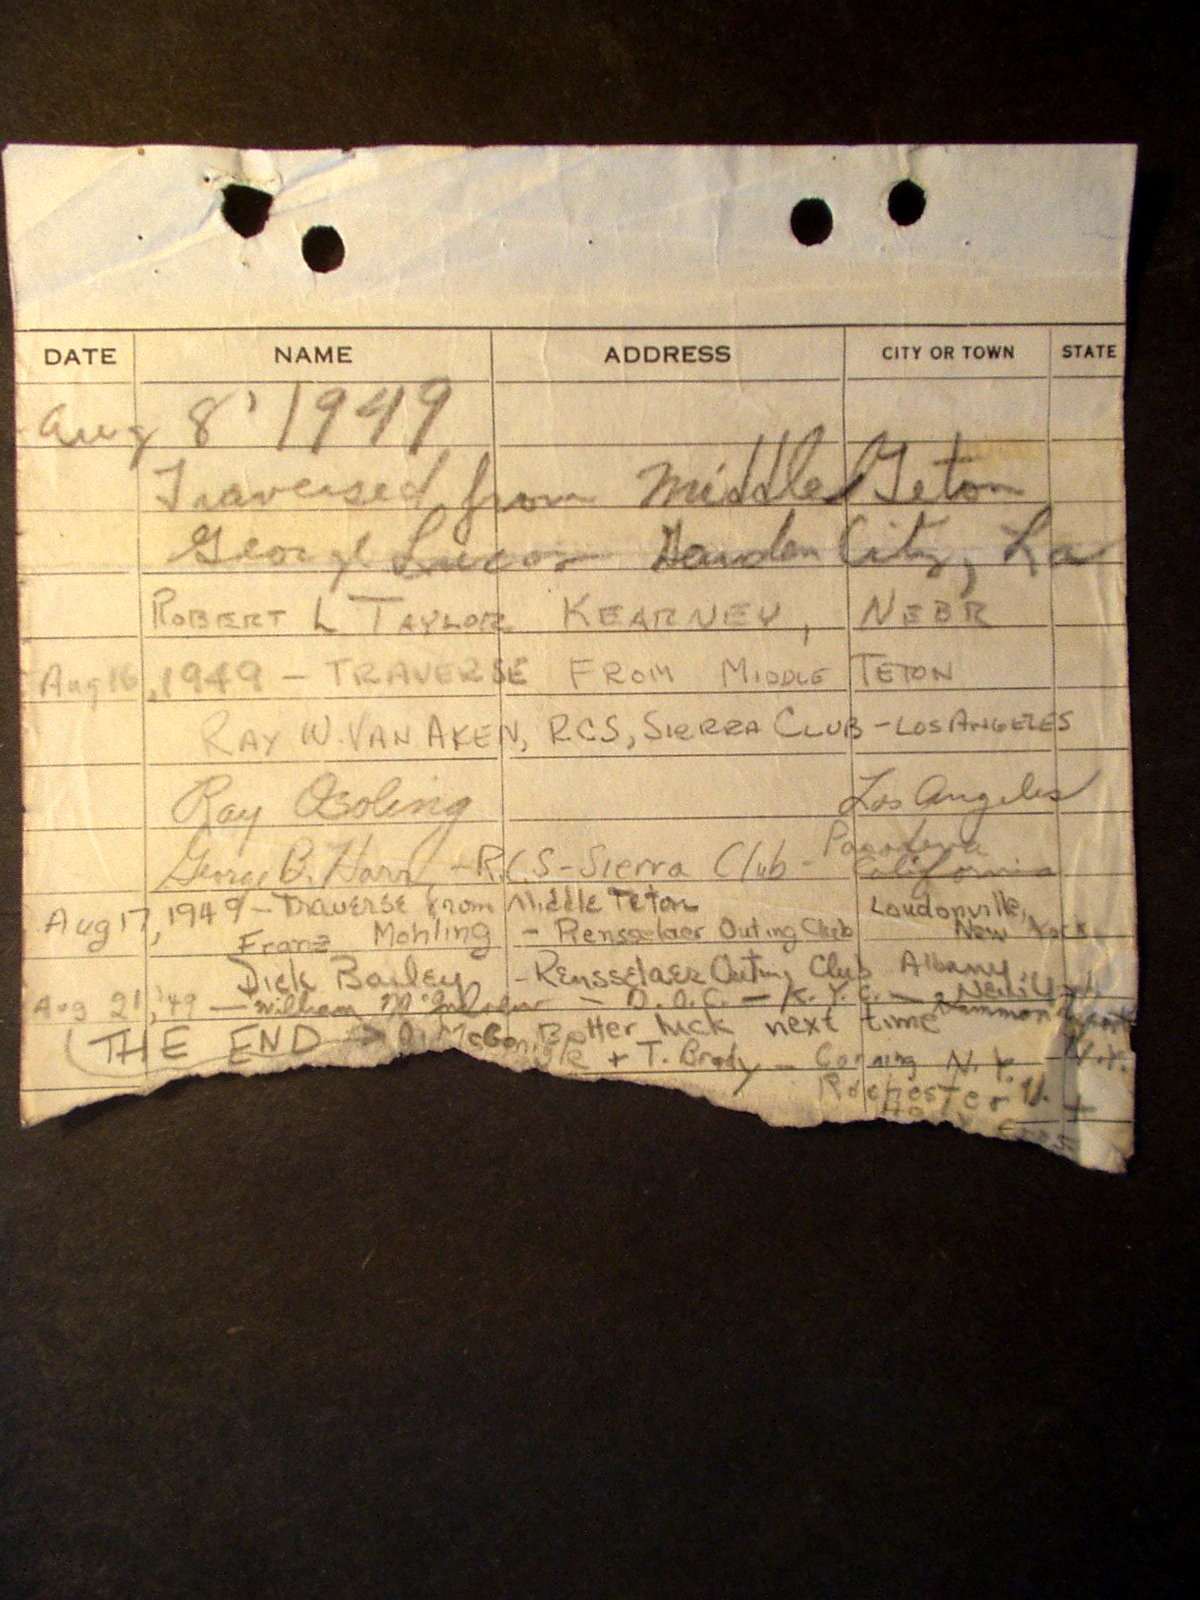 DATE NAME ADDRESS CITY OR TOWN STATE
Aug 8' 1949
Traversed from Middle Teton
George Lucas City, La
ROBERT L TAYLOR KEARNEY, NEBR
Aug 16, 1949 - TRAVERSE FROM MIDDLE TETON
RAY W. VAN AKEN, RCS, SIERRA CLUB - LOS ANGELES
Ray Osoling Los Angeles
George B. Harr - RCS - Sierra Club - Pasadena California
Aug 17, 1949 - TRAVERSE from Middle Teton Loudonville,
Franz Mohling - Rensselaer Outing Club New York
Dick Bailey - Rensselaer Outing Club Albany
Aug 21, '49 - William - D.O.C. - K.Y.C. -
(THE END → Better luck next time
+ T. Brody - Corning N.Y. N.Y.
Rochester N. +